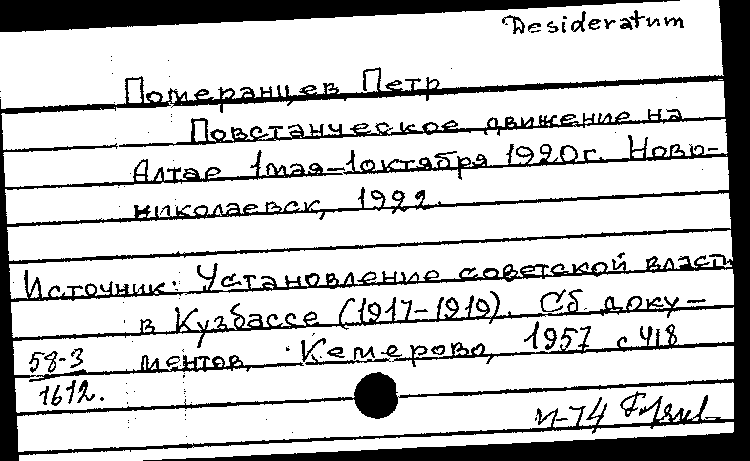 Desideratum
Померанцев, Петр
Повстанческое движение на
Алтае 1 мая-1 октября 1920г. Ново-
николаевск, 1922.
Источник: Установление советской власти
в Кузбассе (1917-1919). Сб. доку-
ментов, Кемерово, 1957 с 418
58-3
1612.
М-74